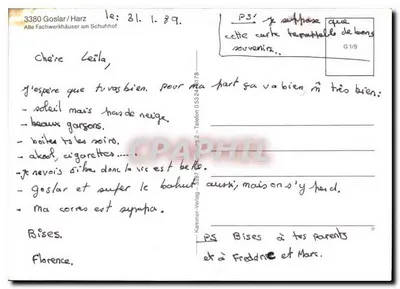 3380 Goslar/Harz
Alte Fachwerkhäuser am Schuhhof
le: 31.1.89.
PS: je suppose que
cette carte te rappelle de bons
souvenirs.
G 1/9
Chère Leïla,
J'espère que tu vas bien. pour ma part ça va bien, m̂ très bien:
- soleil mais pas de neige.
- beaux garçons.
- boîtes ts les soirs.
- alcool, cigarettes.....
- je ne vois si tu dans la vie est belle.
- goslar est super le bahut aussi, mais on s'y perd.
- ma corres est sympa.
Bises.
Florence.
PS Bises à tes parents
et à Frédéric et Marc.
CPAPHIL